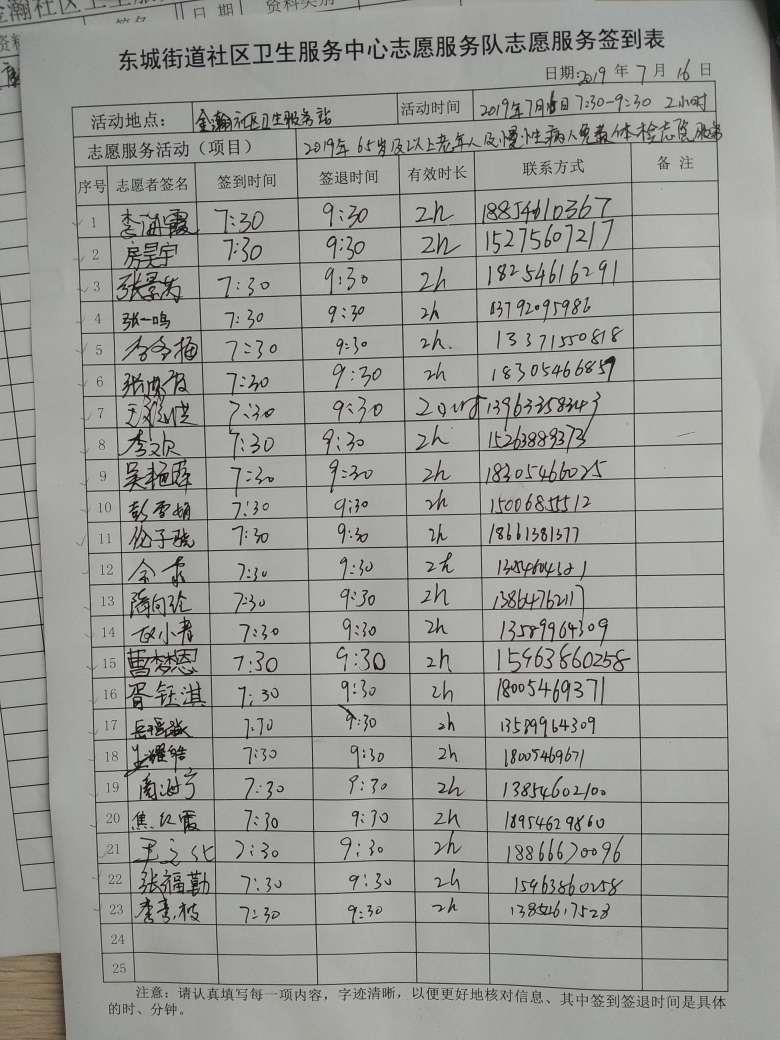 东城街道社区卫生服务中心志愿服务队志愿服务签到表
日期:2019年7月16日
活动地点: 金瀚社区卫生服务站 活动时间 2019年7月16日7:30-9:30 2小时
志愿服务活动(项目) 2019年65岁及以上老年人及慢性病人免费体检志愿服务
序号 志愿者签名 签到时间 签退时间 有效时长 联系方式 备注
1 李海霞 7:30 9:30 2h 18854610367
2 房昊宇 7:30 9:30 2h 15275607217
3 7:30 9:30 2h 18254616291
4 张一鸣 7:30 9:30 2h 13792095986
5 7:30 9:30 2h. 13371550818
6 7:30 9:30 2h 18305466859
7 7:30 9:30 2小时
8 7:30 9:30 2h 15263889373
9 吴艳萍 7:30 9:30 2h 18305466025
10 彭雪娟 7:30 9:30 2h 15006855512
11 7:30 9:30 2h 18661381377
12 7:30 9:30 2h
13 7:30 9:30 2h 13864762117
14 7:30 9:30 2h 13589964309
15 曹梦恩 7:30 9:30 2h 15963860258
16 胥钰淇 7:30 9:30 2h 18005469371
17 7:30 9:30 2h 13589964309
18 7:30 9:30 2h 18005469671
19 7:30 9:30 2h 13854602100
20 焦红霞 7:30 9:30 2h 18954629860
21 7:30 9:30 2h 18866670096
22 张福勤 7:30 9:30 2h 15963860258
23 李青枝 7:30 9:30 2h 13854617528
24
25
注意:请认真填写每一项内容,字迹清晰,以便更好地核对信息、其中签到签退时间是具体
的时、分钟。